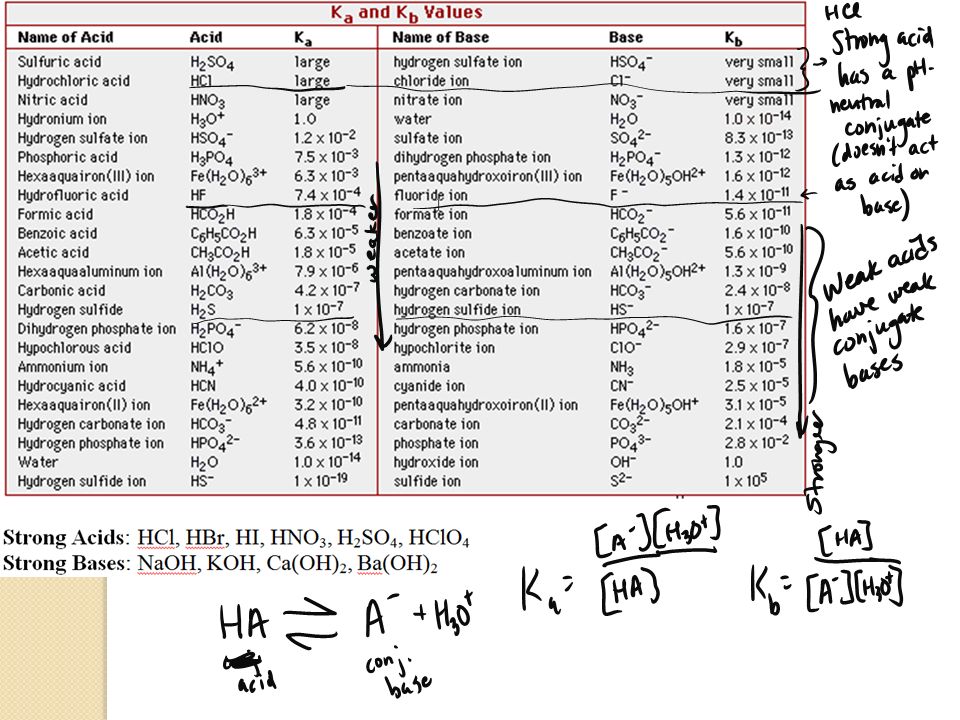 Ka and Kb Values
Name of Acid Acid Ka Name of Base Base Kb
Sulfuric acid H₂SO₄ large hydrogen sulfate ion HSO₄⁻ very small
Hydrochloric acid HCl large chloride ion Cl⁻ very small
Nitric acid HNO₃ large nitrate ion NO₃⁻ very small
Hydronium ion H₃O⁺ 1.0 water H₂O 1.0 x 10⁻¹⁴
Hydrogen sulfate ion HSO₄⁻ 1.2 x 10⁻² sulfate ion SO₄²⁻ 8.3 x 10⁻¹³
Phosphoric acid H₃PO₄ 7.5 x 10⁻³ dihydrogen phosphate ion H₂PO₄⁻ 1.3 x 10⁻¹²
Hexaaquairon(III) ion Fe(H₂O)₆³⁺ 6.3 x 10⁻³ pentaaquahydroxoiron(III) ion Fe(H₂O)₅OH²⁺ 1.6 x 10⁻¹²
Hydrofluoric acid HF 7.4 x 10⁻⁴ fluoride ion F⁻ 1.4 x 10⁻¹¹
Formic acid HCO₂H 1.8 x 10⁻⁴ formate ion HCO₂⁻ 5.6 x 10⁻¹¹
Benzoic acid C₆H₅CO₂H 6.3 x 10⁻⁵ benzoate ion C₆H₅CO₂⁻ 1.6 x 10⁻¹⁰
Acetic acid CH₃CO₂H 1.8 x 10⁻⁵ acetate ion CH₃CO₂⁻ 5.6 x 10⁻¹⁰
Hexaaquaaluminum ion Al(H₂O)₆³⁺ 7.9 x 10⁻⁶ pentaaquahydroxoaluminum ion Al(H₂O)₅OH²⁺ 1.3 x 10⁻⁹
Carbonic acid H₂CO₃ 4.2 x 10⁻⁷ hydrogen carbonate ion HCO₃⁻ 2.4 x 10⁻⁸
Hydrogen sulfide H₂S 1 x 10⁻⁷ hydrogen sulfide ion HS⁻ 1 x 10⁻⁷
Dihydrogen phosphate ion H₂PO₄⁻ 6.2 x 10⁻⁸ hydrogen phosphate ion HPO₄²⁻ 1.6 x 10⁻⁷
Hypochlorous acid HClO 3.5 x 10⁻⁸ hypochlorite ion ClO⁻ 2.9 x 10⁻⁷
Ammonium ion NH₄⁺ 5.6 x 10⁻¹⁰ ammonia NH₃ 1.8 x 10⁻⁵
Hydrocyanic acid HCN 4.0 x 10⁻¹⁰ cyanide ion CN⁻ 2.5 x 10⁻⁵
Hexaaquairon(II) ion Fe(H₂O)₆²⁺ 3.2 x 10⁻¹⁰ pentaaquahydroxoiron(II) ion Fe(H₂O)₅OH⁺ 3.1 x 10⁻⁵
Hydrogen carbonate ion HCO₃⁻ 4.8 x 10⁻¹¹ carbonate ion CO₃²⁻ 2.1 x 10⁻⁴
Hydrogen phosphate ion HPO₄²⁻ 3.6 x 10⁻¹³ phosphate ion PO₄³⁻ 2.8 x 10⁻²
Water H₂O 1.0 x 10⁻¹⁴ hydroxide ion OH⁻ 1.0
Hydrogen sulfide ion HS⁻ 1 x 10⁻¹⁹ sulfide ion S²⁻ 1 x 10⁵
weaker
HCl
Strong acid
has a pH-
neutral
conjugate
(doesn't act
as acid or
base)
Weak acids
have weak
conjugate
bases
Stronger
Strong Acids: HCl, HBr, HI, HNO₃, H₂SO₄, HClO₄
Strong Bases: NaOH, KOH, Ca(OH)₂, Ba(OH)₂
Ka = [A⁻][H₃O⁺] / [HA]
Kb = [HA] / [A⁻][H₃O⁺]
HA ⇌ A⁻ + H₃O⁺
acid
conj.
base